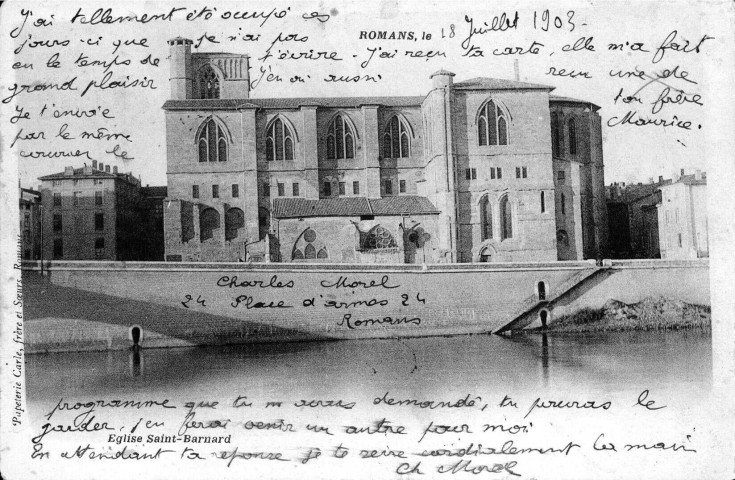 ROMANS, le 18 Juillet 1903-
J'ai tellement été occupé ces
jours-ci que je n'ai pas
eu le temps de t'écrire. J'ai reçu ta carte, elle m'a fait
grand plaisir J'en ai aussi reçu une de
ton frère
Maurice.
Je t'envoie
par le même
courrier le
Charles Morel
24 Place d'armes 24
Romans
programme que tu m'avais demandé, tu pourras le
garder, j'en ferai venir un autre pour moi
Eglise Saint-Barnard
En attendant ta réponse je te serre cordialement la main
Ch Morel
Papeterie Carle, frère et Sœurs, Romans